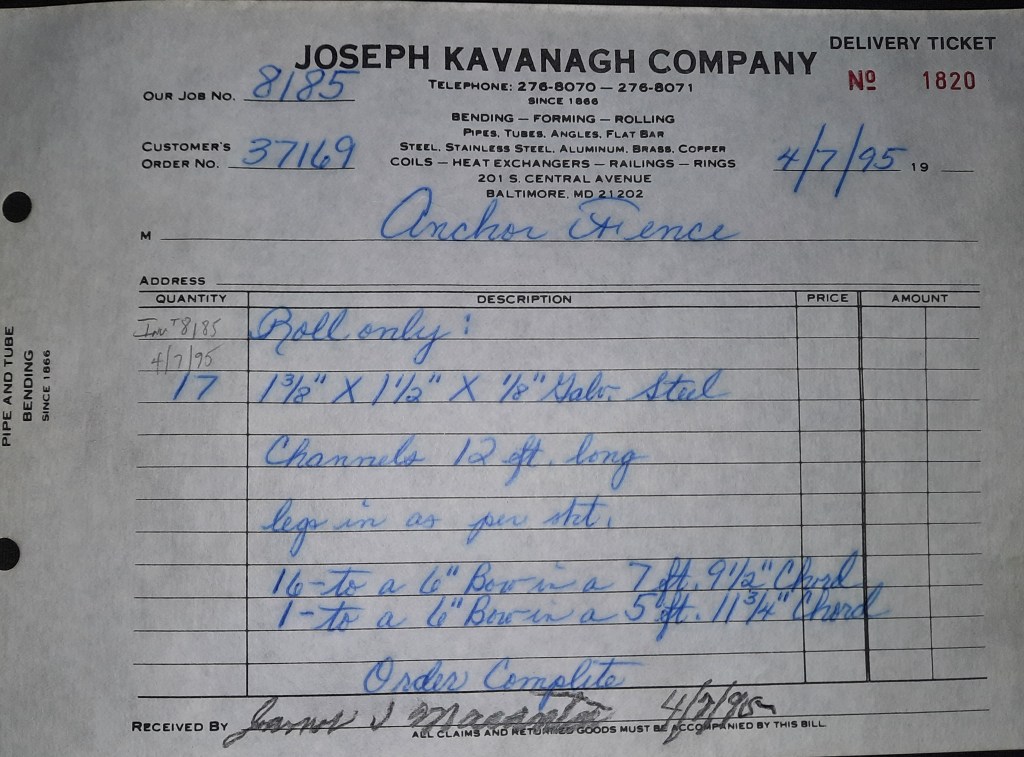 DELIVERY TICKET
JOSEPH KAVANAGH COMPANY
Nº 1820
OUR JOB NO. 8185
TELEPHONE: 276-8070 — 276-8071
SINCE 1866
BENDING — FORMING — ROLLING
PIPES, TUBES, ANGLES, FLAT BAR
CUSTOMER'S
ORDER NO. 37169
STEEL, STAINLESS STEEL, ALUMINUM, BRASS, COPPER
COILS — HEAT EXCHANGERS — RAILINGS — RINGS
4/7/95 19
201 S. CENTRAL AVENUE
BALTIMORE, MD 21202
M Anchor Fence
ADDRESS
QUANTITY DESCRIPTION PRICE AMOUNT
8185 Roll only:
4/7/95
17 1 3/8" X 1 1/2" X 1/8" Galv. Steel
Channels 12 ft. long
legs in as per skt.
16-to a 6" Bow in a 7 ft. 9 1/2" Chord
1-to a 6" Bow in a 5 ft. 11 3/4" Chord
Order Complete
RECEIVED BY 4/7/95
ALL CLAIMS AND RETURNED GOODS MUST BE ACCOMPANIED BY THIS BILL
PIPE AND TUBE
BENDING
SINCE 1866